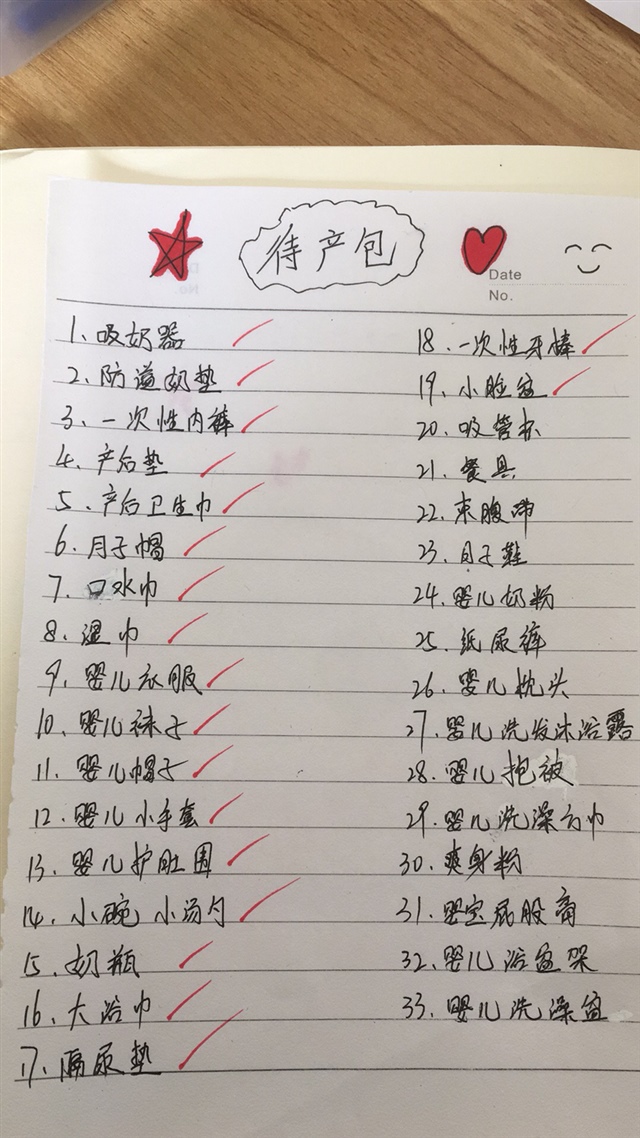 待产包
Date
No.
1、吸奶器
2、防溢奶垫
3、一次性内裤
4、产后垫
5、产后卫生巾
6、月子帽
7、口水巾
8、湿巾
9、婴儿衣服
10、婴儿袜子
11、婴儿帽子
12、婴儿小手套
13、婴儿护肚围
14、小碗 小汤勺
15、奶瓶
16、大浴巾
17、隔尿垫
18、一次性牙棒
19、小脸盆
20、吸管杯
21、餐具
22、束腹带
23、月子鞋
24、婴儿奶粉
25、纸尿裤
26、婴儿枕头
27、婴儿洗发沐浴露
28、婴儿抱被
29、婴儿洗澡方巾
30、爽身粉
31、婴宝屁股膏
32、婴儿浴盆架
33、婴儿洗澡盆